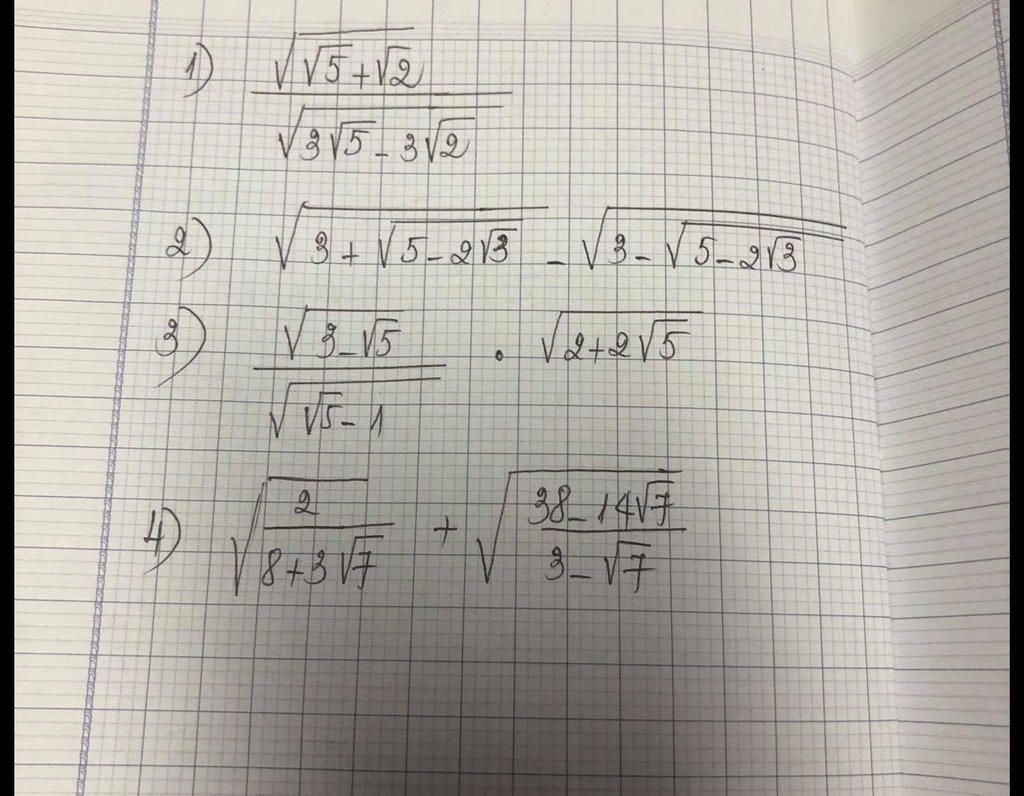 1) √(√5 + √2) / √(3√5 - 3√2)
2) √(3 + √(5 - 2√3)) - √(3 - √(5 - 2√3))
3) √(3 - √5) / √(√5 - 1) . √(2 + 2√5)
4) √(2 / (8 + 3√7)) + √((38 - 14√7) / (3 - √7))